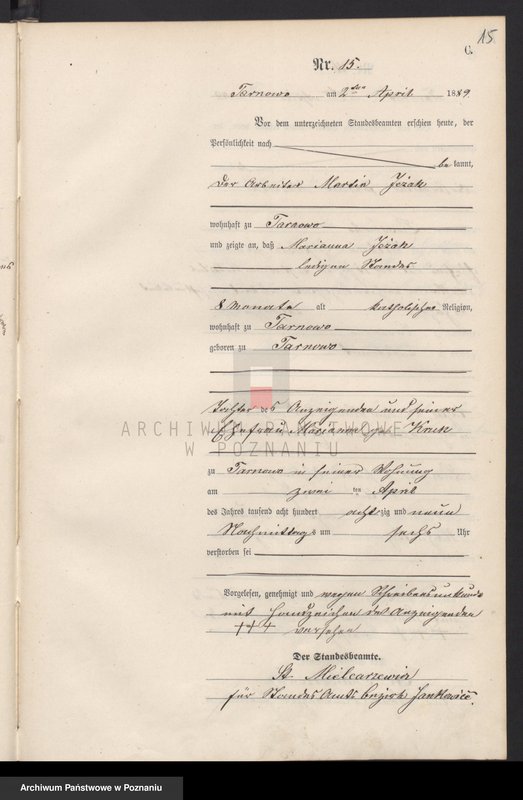 15
C.
Nr. 15.
Tarnowo am 2ten April 1889
Vor dem unterzeichneten Standesbeamten erschien heute, der
Persönlichkeit nach
be kannt,
der Arbeiter Martin Jeżak
wohnhaft zu Tarnowo
und zeigte an, daß Marianna Jeżak
ledigen Standes
8 Monate alt katholischer Religion,
wohnhaft zu Tarnowo
geboren zu Tarnowo
Tochter des Anzeigenden und seiner
Ehefrau Marianna geb.
ARCHIWUM PAŃSTWOWE
W POZNANIU
zu Tarnowo in seiner Wohnung
am zwei ten April
des Jahres tausend acht hundert achtzig und neun
Nachmittags um sechs Uhr
verstorben sei
Vorgelesen, genehmigt und wegen Schreibensunkunde
mit Handzeichen des Anzeigenden
+++ versehen
Der Standesbeamte.
St. Mielcarzewicz
für Standes Amts bezirk Jankowice.
Archiwum Państwowe w Poznaniu